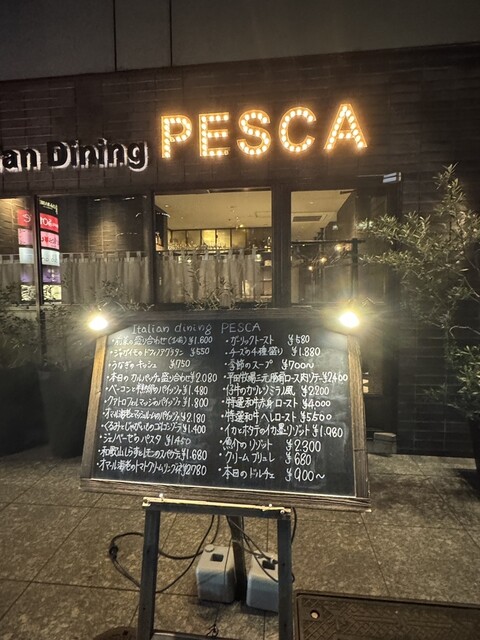 an Dining PESCA
Italian dining PESCA
・前菜の盛り合わせ(5種) ¥1,600
・ジャガイモのドフィノアグラタン ¥550
・うなぎのキッシュ ¥750
・本日のカルパッチョ盛り合わせ ¥2,080
・ベーコンと ¥1,480
・クアトロフォルマッジの ¥1,980
・オマール海老と ¥2,180
・くるみとじゃがいものゴルゴンゾーラ ¥1,400
・ジェノベーゼのパスタ ¥1450
・和歌山しらすとレモンのスパゲティ ¥1,680
・オマール海老のトマトクリームリングイネ ¥2780
・ガーリックトースト ¥580
・チーズの4種盛り ¥1,880
・季節のスープ ¥700〜
・平田牧場三元豚肩ロース肉ソテー ¥2,400
・仔牛のカツレツ ミラノ風 ¥2200
・特選和牛赤身ロースト ¥4000
・特選和牛ヘレロースト ¥5500
・イカとホタテのイカ墨リゾット ¥1,980
・魚介のリゾット ¥2300
・クリームブリュレ ¥680
・本日のドルチェ ¥900〜